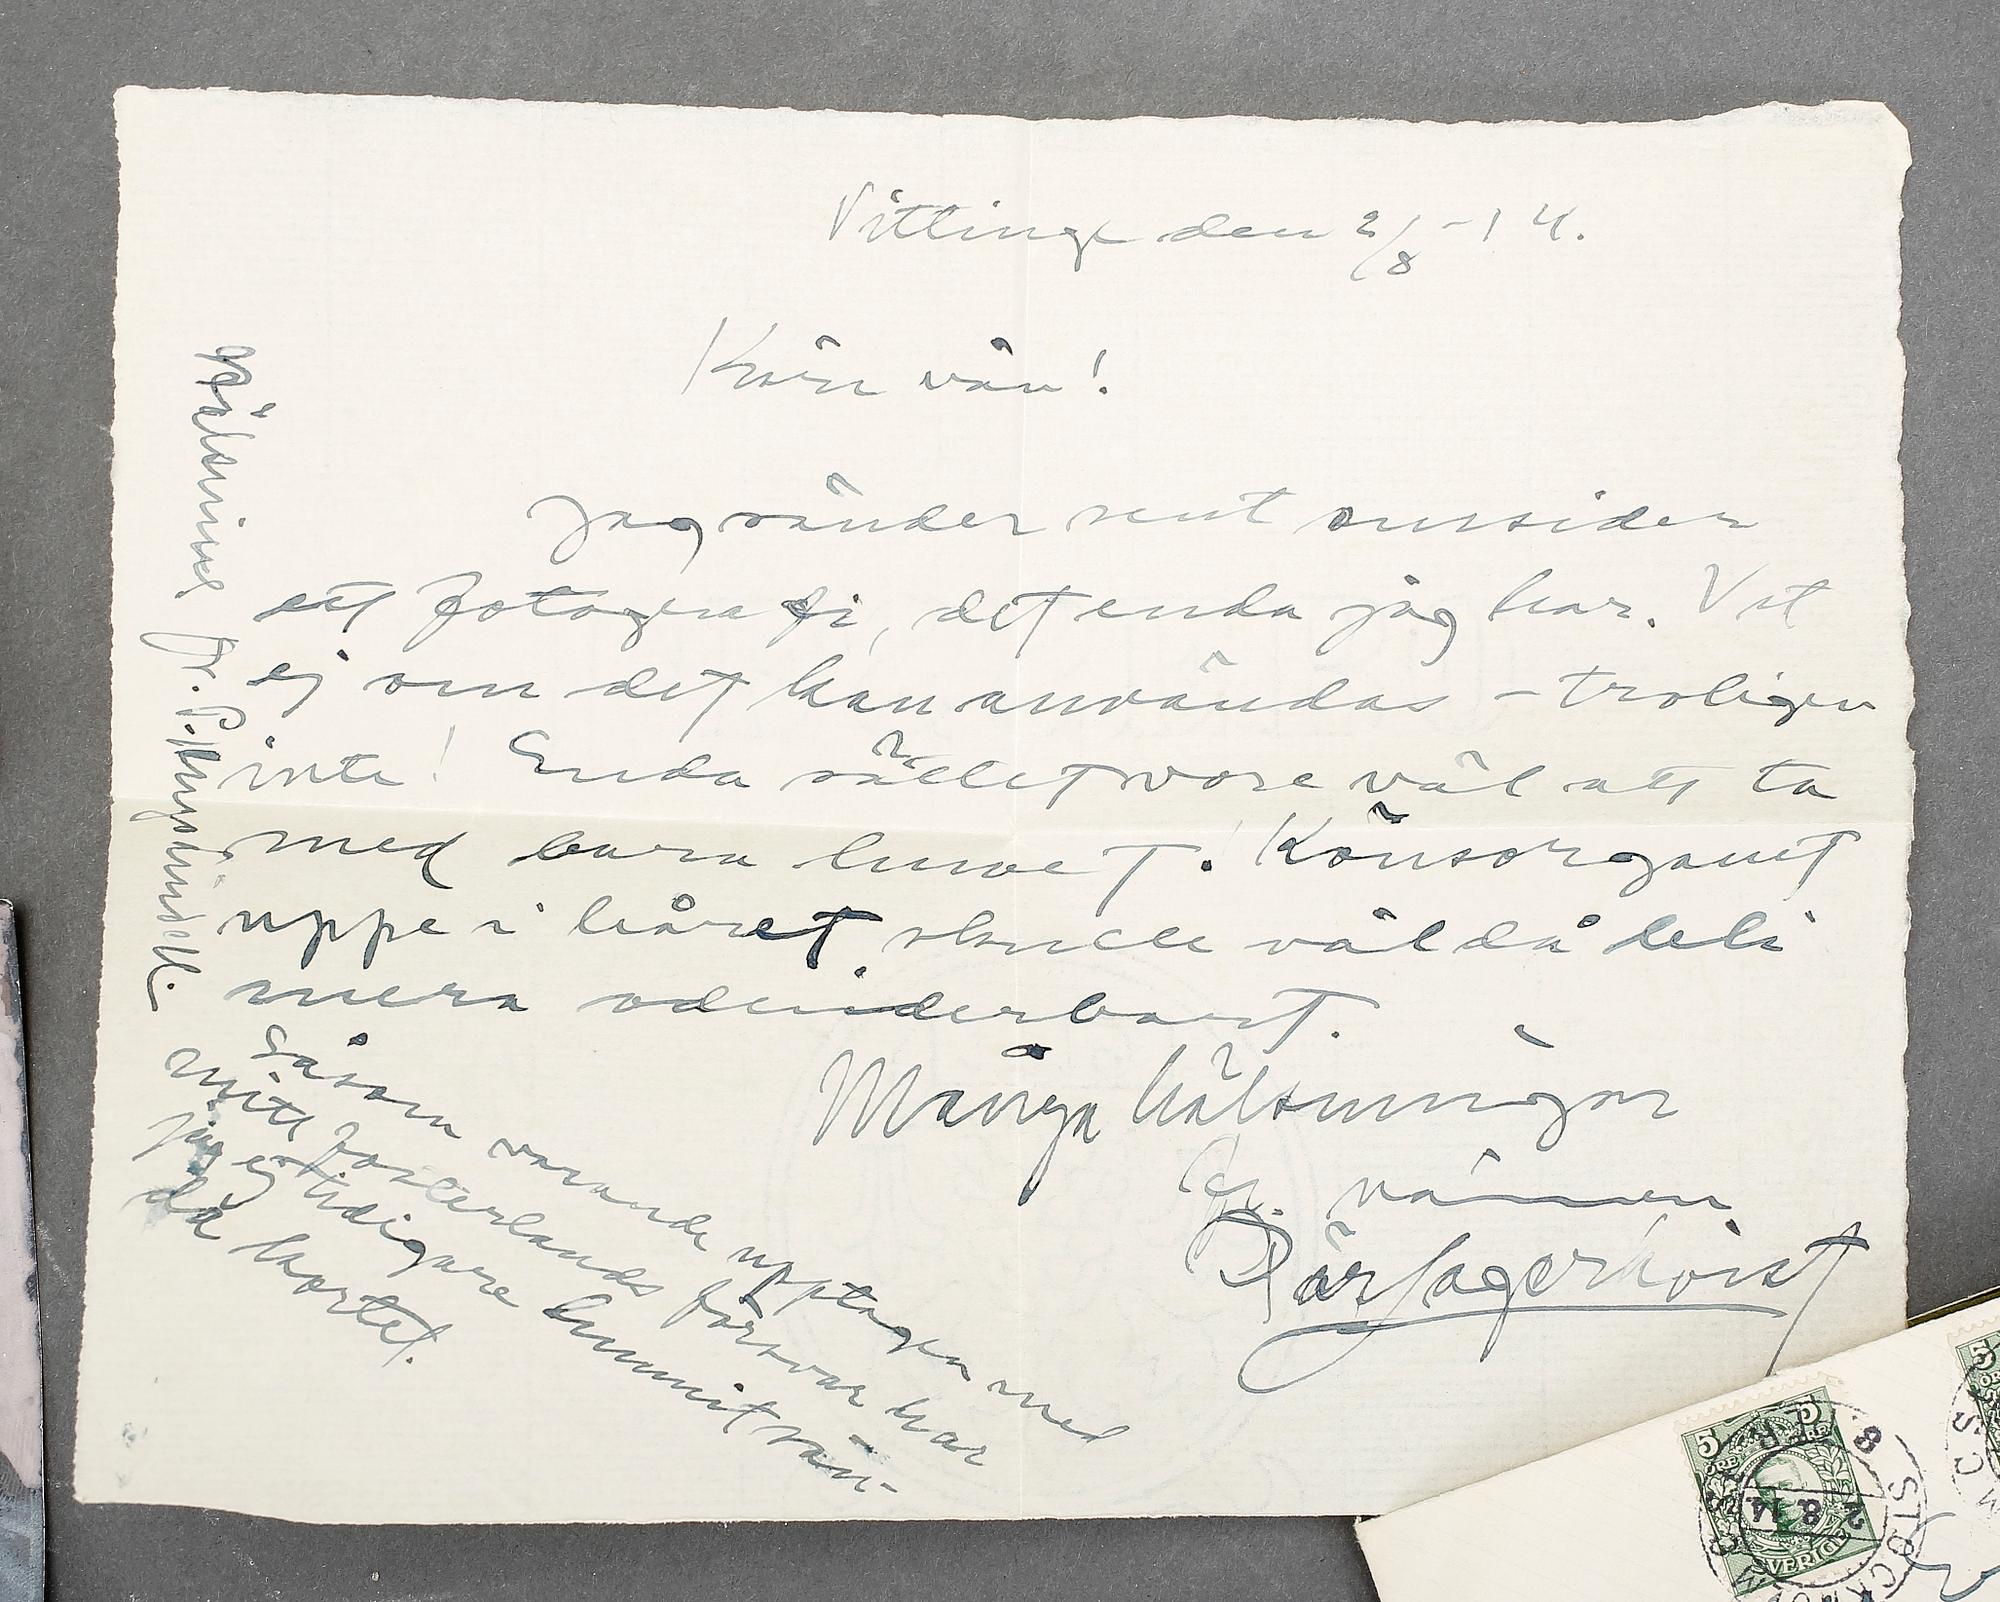 Vittinge den 2/8 -14.
Kära vän!
Jag sänder sent omsider
ett fotografi, det enda jag har. Vet
ej om det kan användas – troligen
inte! Enda sättet vore väl att ta
med bara huvet! Könsorganet
uppe i håret skulle väl då bli
mera odeciderbart.
Många hälsningar
vännen
Pär Lagerkvist
Såsom varande upptagen med
mitt fosterlands försvar har
jag ej tidigare hunnit sän-
da kortet.
Hälsning fr. P.
5
5
ÖRE
ÖRE
SVERIGE
2 8.14
8. TUR
5